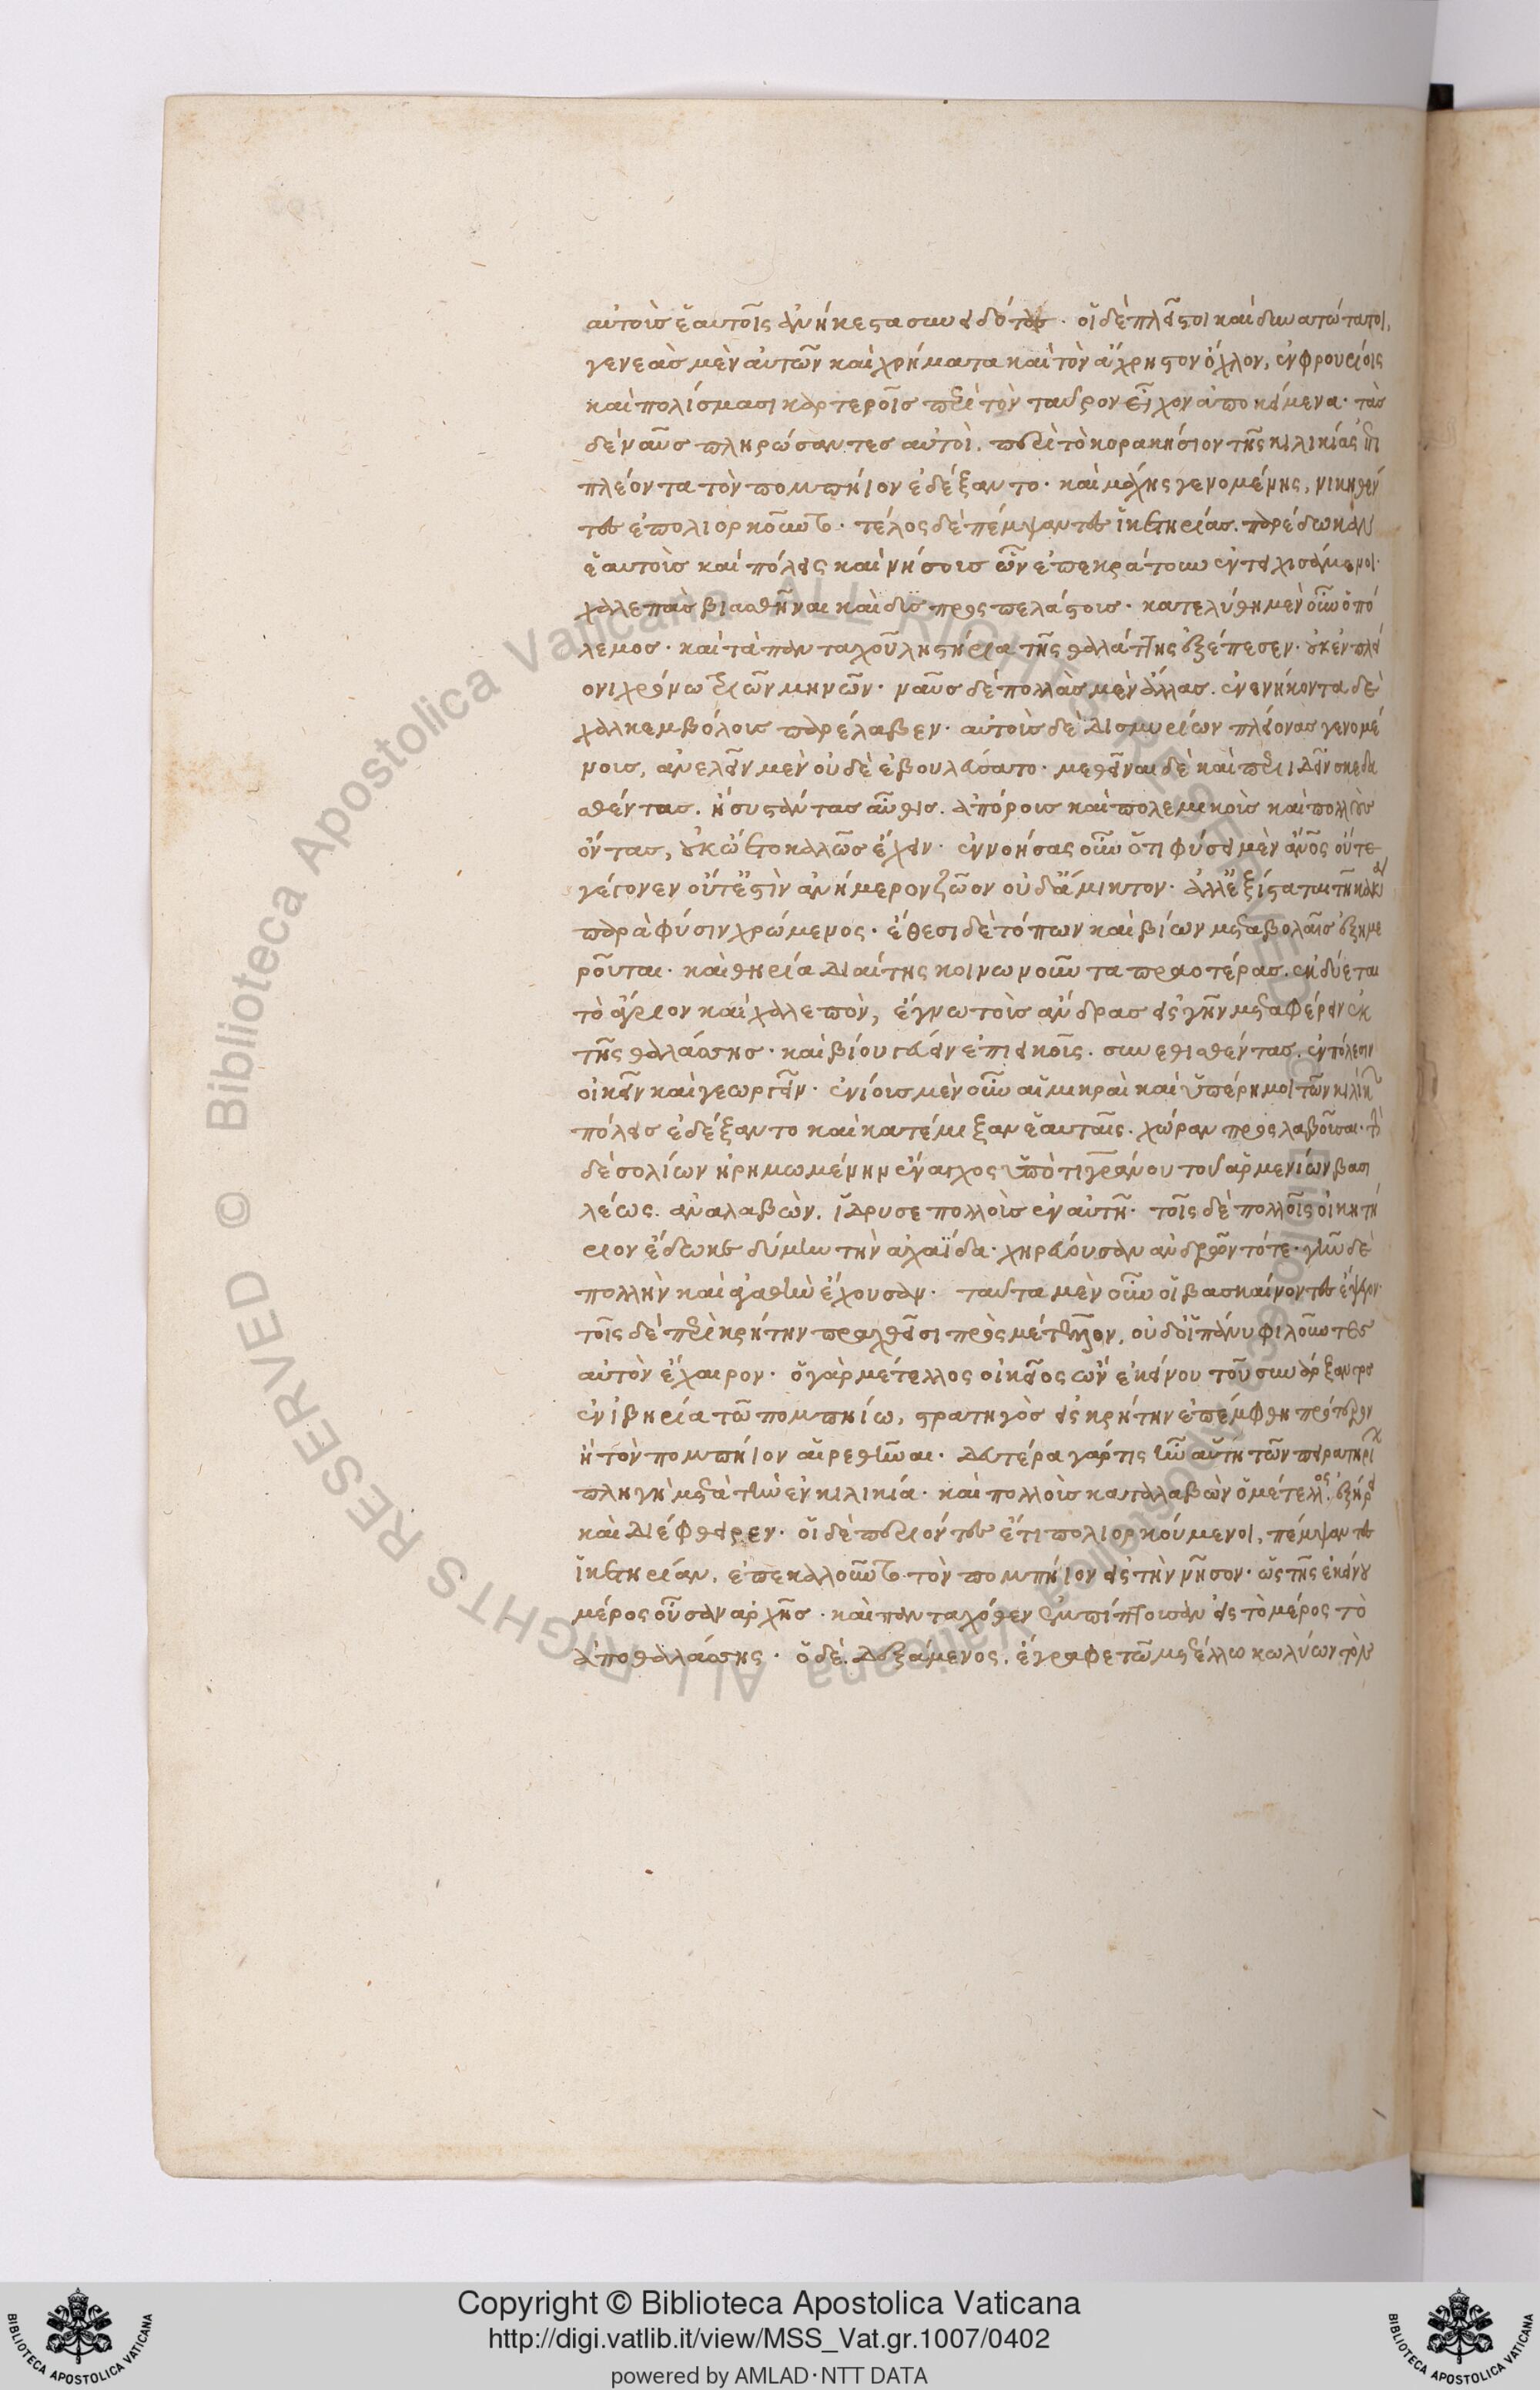 αὐτοὺς ἑαυτοῖς ἀνήκεστα συνειδότας. οἱ δὲ πλεῖστοι καὶ δυνατώτατοι,
γενεὰς μὲν αὐτῶν καὶ χρήματα καὶ τὸν ἄχρηστον ὄχλον, ἐν φρουρίοις
καὶ πολίσμασι καρτεροῖς περὶ τὸν ταῦρον εἶχον ἀποκείμενα. τὰς
δὲ ναῦς πληρώσαντες αὐτοὶ. περὶ τὸ κορακήσιον τῆς κιλικίας ἐπι
πλέοντα τὸν πομπήιον ἐδέξαντο. καὶ μάχης γενομένης, νικηθέν
τες ἐπολιορκοῦντο. τέλος δὲ πέμψαντες ἱκετηρίας. παρέδωκαν
ἑαυτοὺς καὶ πόλεις καὶ νήσους ὧν ἐπεκράτουν ἐντειχισάμενοι.
χαλεπὰς βιασθῆναι καὶ δυσπροσπελάστους. κατελύθη μὲν οὖν ὁ πό
λεμος. καὶ τὰ πανταχοῦ ληστήρια τῆς θαλάττης ἐξέπεσεν. οὐκ ἐν πλεί
ονι χρόνω τριῶν μηνῶν. ναῦς δὲ πολλὰς μὲν ἄλλας. ἐνενήκοντα δὲ
χαλκεμβόλους παρέλαβεν. αὐτοὺς δὲ δισμυρίων πλείονας γενομέ
νους, ἀνελεῖν μὲν οὐδὲ ἐβουλεύσατο. μεθεῖναι δὲ καὶ περιιδεῖν σκεδα
σθέντας. ἢ συστάντας αὖθις. ἀπόρους καὶ πολεμικοὺς καὶ πολλοὺς
ὄντας, οὐκ ὤετο καλῶς ἔχειν. ἐννοήσας οὖν ὅτι φύσει μὲν ἄνος οὔτε
γέγονεν οὔτ' ἐστὶν ἀνήμερον ζῶον οὐδ' ἄμικτον. ἀλλ' ἐξίσταται τῆ κακί
παρὰ φύσιν χρώμενος. ἔθεσι δὲ τόπων καὶ βίων μεταβολαῖς ἐξημε
ροῦται. καὶ θηρία διαίτης κοινωνοῦντα πραοτέρας. ἐκδύεται
τὸ ἄγριον καὶ χαλεπὸν, ἔγνω τοὺς ἄνδρας εἰς γῆν μεταφέρειν ἐκ
τῆς θαλάσσης. καὶ βίου γεύειν ἐπιεικοῦς. συνεθισθέντας. ἐν πόλεσιν
οἰκεῖν καὶ γεωργεῖν. ἐνίους μὲν οὖν αἱ μικραὶ καὶ ὑπέρημοι τῶν κιλίκων
πόλεις ἐδέξαντο καὶ κατέμιξαν ἑαυταῖς. χώραν προσλαβοῦσαι. τὴν
δὲ σολίων ἠρημωμένην ἔναγχος ὑπὸ τιγράνου τοῦ ἀρμενίων βασι
λέως. ἀναλαβὼν. ἵδρυσε πολλοὺς ἐν αὐτῆ. τοῖς δὲ πολλοῖς οἰκητή
ριον ἔδωκε δύμην τὴν ἀχαΐδα. χηρεύουσαν ἀνδρῶν τότε. γῆν δὲ
πολλὴν καὶ ἀγαθὴν ἔχουσαν. ταῦτα μὲν οὖν οἱ βασκαίνοντες ἔψεγον.
τοῖς δὲ περὶ κρήτην πραχθεῖσι πρὸς μέτελλον, οὐδ' οἱ πάνυ φιλοῦντες
αὐτὸν ἔχαιρον. ὁ γὰρ μέτελλος οἰκεῖος ὢν ἐκείνου τοῦ συνάρξαντος
ἐν ἰβηρία τῶ πομπηίω, στρατηγὸς εἰς κρήτην ἐπέμφθη πρότερον
ἢ τὸν πομπήιον αἱρεθῆναι. δευτέρα γάρ τις ἦν αὕτη τῶν πειρατηρί
πληγὴ μετὰ τὴν ἐν κιλικία. καὶ πολλοὺς καταλαβὼν ὁ μέτελλος. ἐξήρει
καὶ διέφθειρεν. οἱ δὲ περιόντες ἔτι πολιορκούμενοι, πέμψαντες
ἱκετηρίαν. ἐπεκαλοῦντο τὸν πομπήιον εἰς τὴν νῆσον. ὡς τῆς ἐκείνου
μέρος οὖσαν ἀρχῆς. καὶ πανταχόθεν ἐμπίπτουσαν εἰς τὸ μέρος τὸ
ἀπὸ θαλάσσης. ὁ δὲ. δεξάμενος. ἔγραφε τῶ μετέλλω κωλύων τὸν
Copyright © Biblioteca Apostolica Vaticana
http://digi.vatlib.it/view/MSS_Vat.gr.1007/0402
powered by AMLAD·NTT DATA